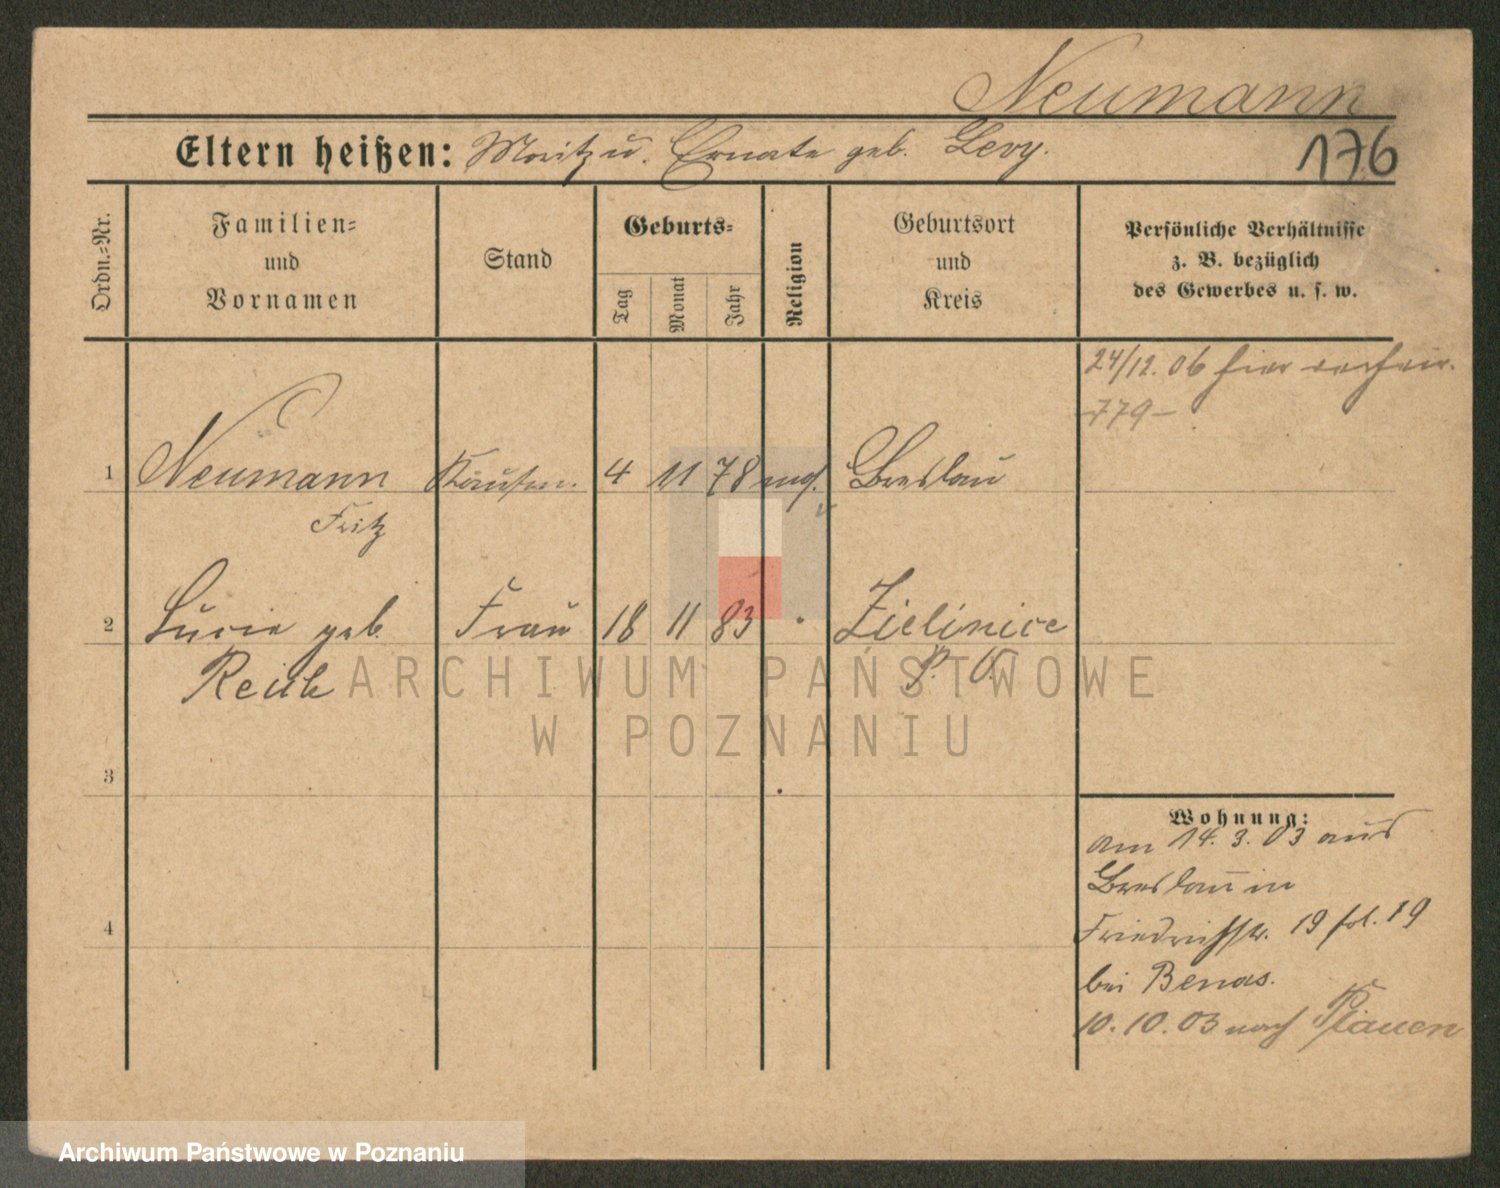 Neumann
Eltern heißen: Moritz u. Ernate geb. Levy.
176
Ordn.-Nr.
Familien-
und
Vornamen
Stand
Geburts-
Tag
Monat
Jahr
Religion
Geburtsort
und
Kreis
Persönliche Verhältnisse
z. B. bezüglich
des Gewerbes u. s. w.
24/12. 06 hier
-779-
1 Neumann Kaufm. 4 11 78 mos. Breslau
Fritz
2 Lucie geb. Frau 18 11 83 Zielinice
Reich P. O.
ARCHIWUM PAŃSTWOWE
W POZNANIU
3
4
Wohnung:
am 14. 3. 03 aus
Breslau in
Friedrichstr. 19 fol. 19
bei Benas.
10. 10. 03 nach Plauen
Archiwum Państwowe w Poznaniu